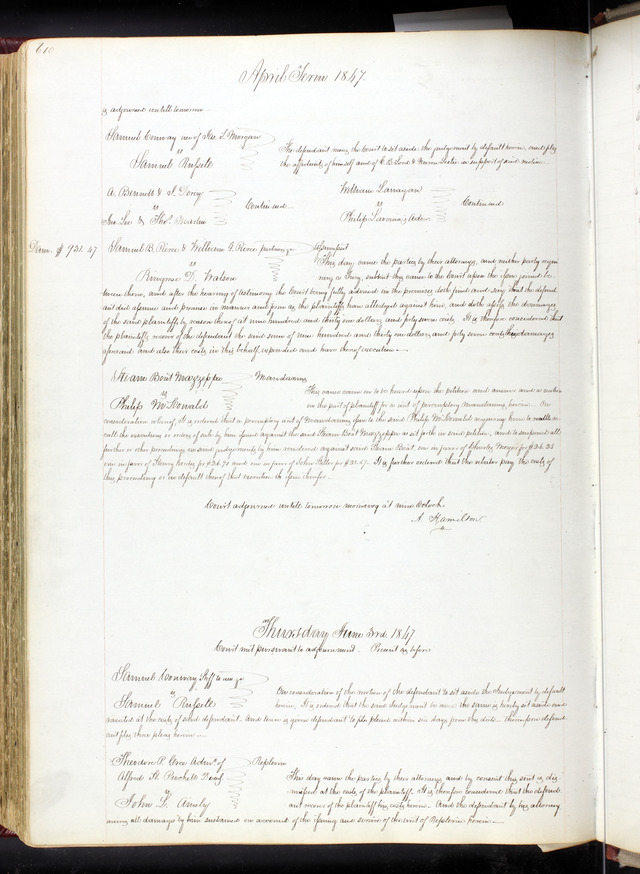 610
April Term 1847
is adjourned untill tomorrow
Samuel Conway use of Jas. S. Morgan
vs
Samuel Russell
The defendant moves the Court to set aside the judgement by default herein, and files
the affidavits of himself and of C. B. Lord & in support of said motion
A. Bennett & J. Doxey
vs
Jno. Lee & Thos.
Continued
William Larragan
vs
Philip Adm.
Continued
Dam. $931.47
Samuel B. Rice & William G. Rice partners &c
vs
D. Watson
Assumpsit
This day came the parties by their attorneys, and neither party requi-
ring a Jury, submit this cause to the Court upon the issue joined be-
tween them, and after the hearing of testimony the Court being fully advised in the premises doth find and say that the defend-
ant did assume and promise in manner and form as the plaintiffs have alledged against him, and doth assess the damages
of the said plaintiffs by reason thereof at nine hundred and thirty one dollars and forty seven cents. It is therefore considered that
the plaintiffs recover of the defendant the said sum of nine hundred and thirty one dollars and forty seven cents, their damages
aforesaid and also their costs in this behalf expended and have thereof execution.
Steam Boat Mazeppa
vs
Philip McDonald
Mandamus
This cause came on to be heard upon the petition and answer and a motion
on the part of plaintiff for a writ of peremptory mandamus herein. On
consideration whereof, It is ordered that a peremptory writ of Mandamus issue to the said Philip McDonald requiring him to
call the or orders of sale by him issued against the said Steam Boat Mazeppa as set forth in said petition, and to suspend all
further or other proceedings on said judgements by him rendered against said Steam Boat, one in favor of Charles for $36.38
one in favor of Henry for $36.70 and one in favor of John for It is further ordered that the relator pay the costs of
this proceeding or in default thereof that execution issue therefor
Court adjourned untill tomorrow morning at nine Oclock
A. Hamilton
Thursday June 3rd. 1847
Court met persuant to adjournment. Present as before
Samuel Conway to use &c
vs
Samuel Russell
On consideration of the motion of the defendant to set aside the Judgement by default
herein, It is ordered that the said Judgement be and the same is hereby set aside and
vacated at the costs of said defendant. And leave is given defendant to file pleas within six days from this date. Whereupon defend-
ant files three pleas herein
Theodore P. Admr. of
Alfred H. Decd.
vs
John L. Ainsly
Replevin
This day came the parties by their attorneys and by consent this suit is dis-
missed at the costs of the plaintiff. It is therefore considered that the defend-
ant recover of the plaintiff his costs herein. And the defendant by his attorney
waives all damages by him sustained on account of the issuing and service of the writ of Replevin herein.